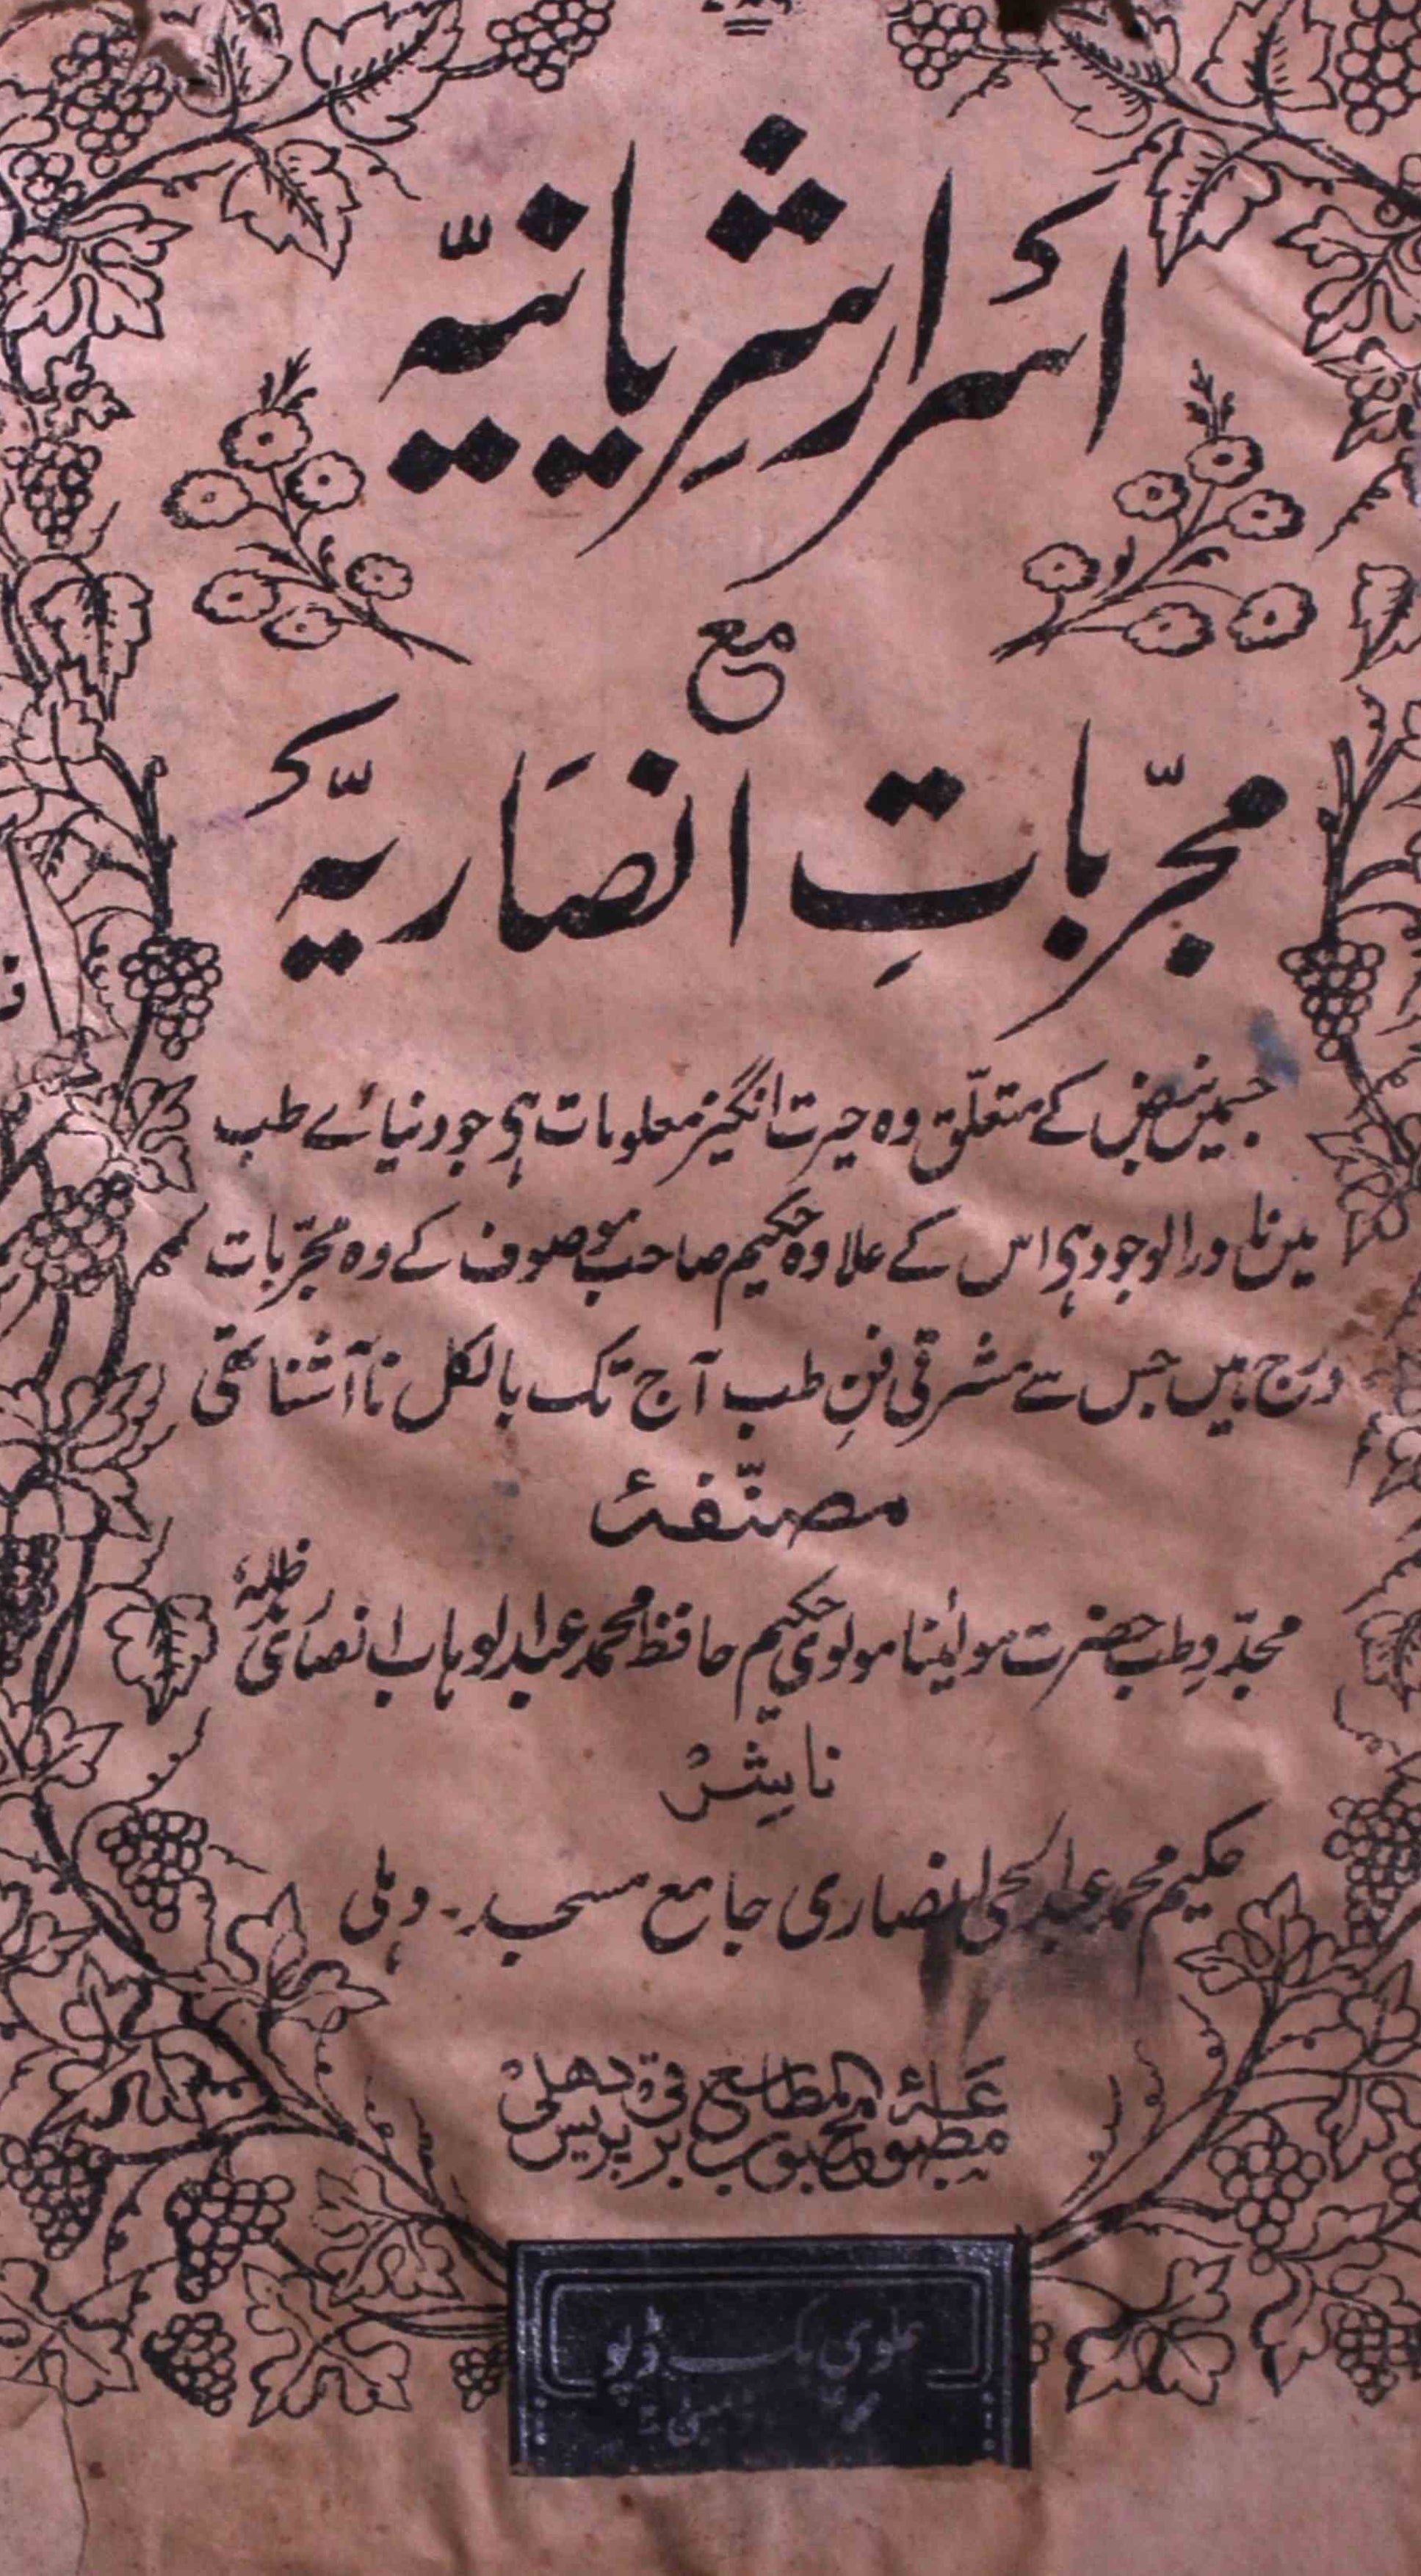 اسرارِ شِریانیّہ
مع
مجرّباتِ انصاریّہ
جسمیں نبض کے متعلّق وہ حیرت انگیز معلومات ہیں جو دنیائے طب
میں نادر الوجود ہیں اس کے علاوہ حکیم صاحب موصوف کے وہ مجرّبات
درج ہیں جس سے مشرقی فنِ طب آج تک بالکل ناآشنا تھی
مصنّفۂ
مجدّدِ طب حضرت مولٰینا مولوی حکیم حافظ محمد عبدالوہاب انصاری مدظلہٗ
ناشر
حکیم محمد عبدالحی انصاری جامع مسجد۔ دہلی
مطبوعہ محبوب المطابع برقی پریس دھلی
علوی بک ڈپو
بمبئی